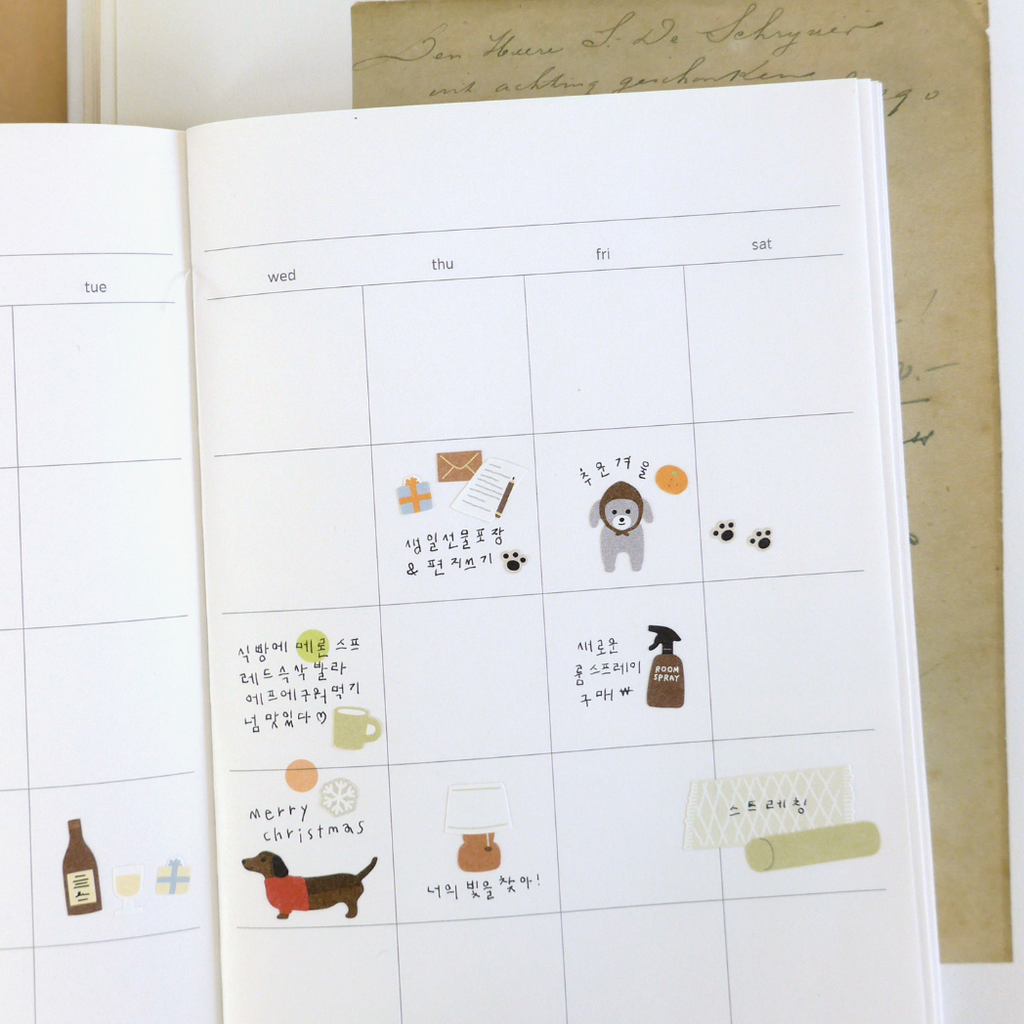 Den Heere S. De Schryver
met achting geschonken
tue
wed
thu
fri
sat
생일선물포장
& 편지쓰기
추운겨울
식빵에 메론 스프
레드슥삭 발라
에프에구워먹기
넘 맛있다♡
새로운
룸스프레이
구매 ₩
ROOM
SPRAY
merry
christmas
너의 빛을 찾아!
스트레칭